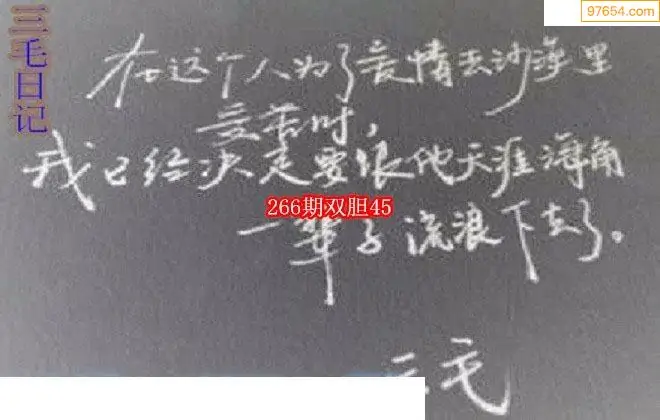 97654.com
三毛日记
在这个人为了爱情去沙漠里
受苦时，
我已经决定要跟他天涯海角
266期双胆45
一辈子流浪下去了。
三毛